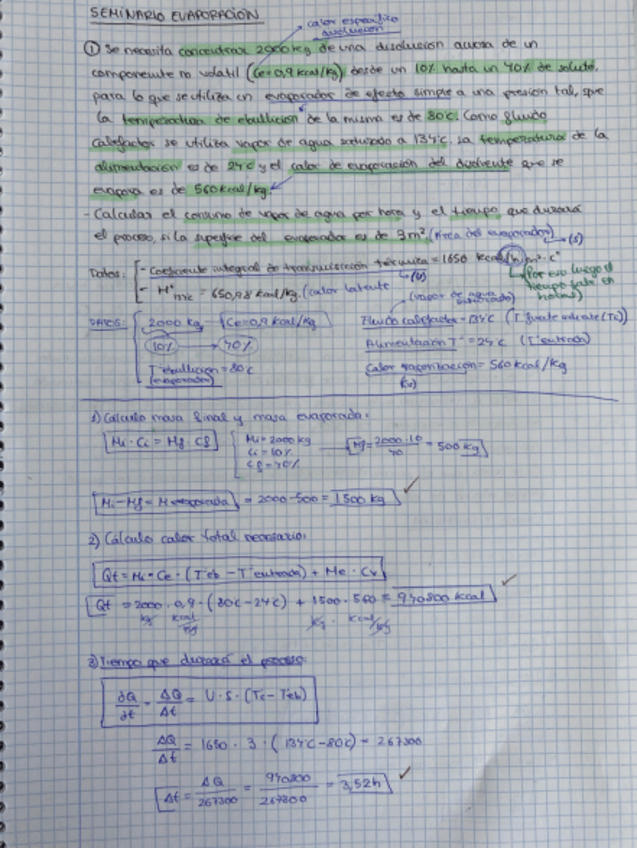 SEMINARIO EVAPORACIÓN
calor específico disolución
① Se necesita concentrar 2000 kg de una disolución acuosa de un
componente no volátil (Ce=0,9 kcal/kg) desde un 10% hasta un 40% de soluto,
para lo que se utiliza un evaporador de efecto simple a una presión tal, que
la temperatura de ebullición de la misma es de 80ºC. Como fluido
calefactor se utiliza vapor de agua saturado a 134ºC. La temperatura de la
alimentación es de 24ºC y el calor de evaporación del disolvente que se
evapora es de 560 kcal/kg.
- Calcular el consumo de vapor de agua por hora y el tiempo que durará
el proceso, si la superficie del evaporador es de 3m² (área del evaporador)
(S)
Datos:
- Coeficiente integral de transmisión térmica = 1650 kcal/h m² ºC
(U)
Por eso luego el tiempo sale en horas
- = 650,98 kcal/kg. (calor latente
(vapor de agua saturado)
DATOS:
2000 kg - Ce=0,9 kcal/kg
10% → 40%
Tº ebullición = 80ºC
(evaporador)
Fluido calefactor = 134ºC (Tº fuente caliente (Tc))
Alimentación Tº = 24ºC (Tº entrada)
Calor vaporización = 560 kcal/kg
(Cv)
1) Cálculo masa final y masa evaporada:
Mi · Ci = Mf · Cf
Mi = 2000 kg
Ci = 10%
Cf = 40%
Mf = 2000·10/40 = 500 kg
Mi - Mf = M evaporada = 2000-500 = 1500 kg ✓
2) Cálculo calor total necesario:
Qt = Mi · Ce · (Tºeb - Tºentrada) + Me · Cv
Qt = 2000 · 0,9 · (80ºC-24ºC) + 1500 · 560 = 940800 kcal ✓
kg kcal/kg kg · kcal/kg
3) Tiempo que durará el proceso:
∂Q/∂t = ΔQ/Δt = U · S · (Tc - Tºeb)
ΔQ/Δt = 1650 · 3 · (134ºC-80ºC) = 267300
Δt = ΔQ/267300 = 940800/267300 = 3,52h ✓